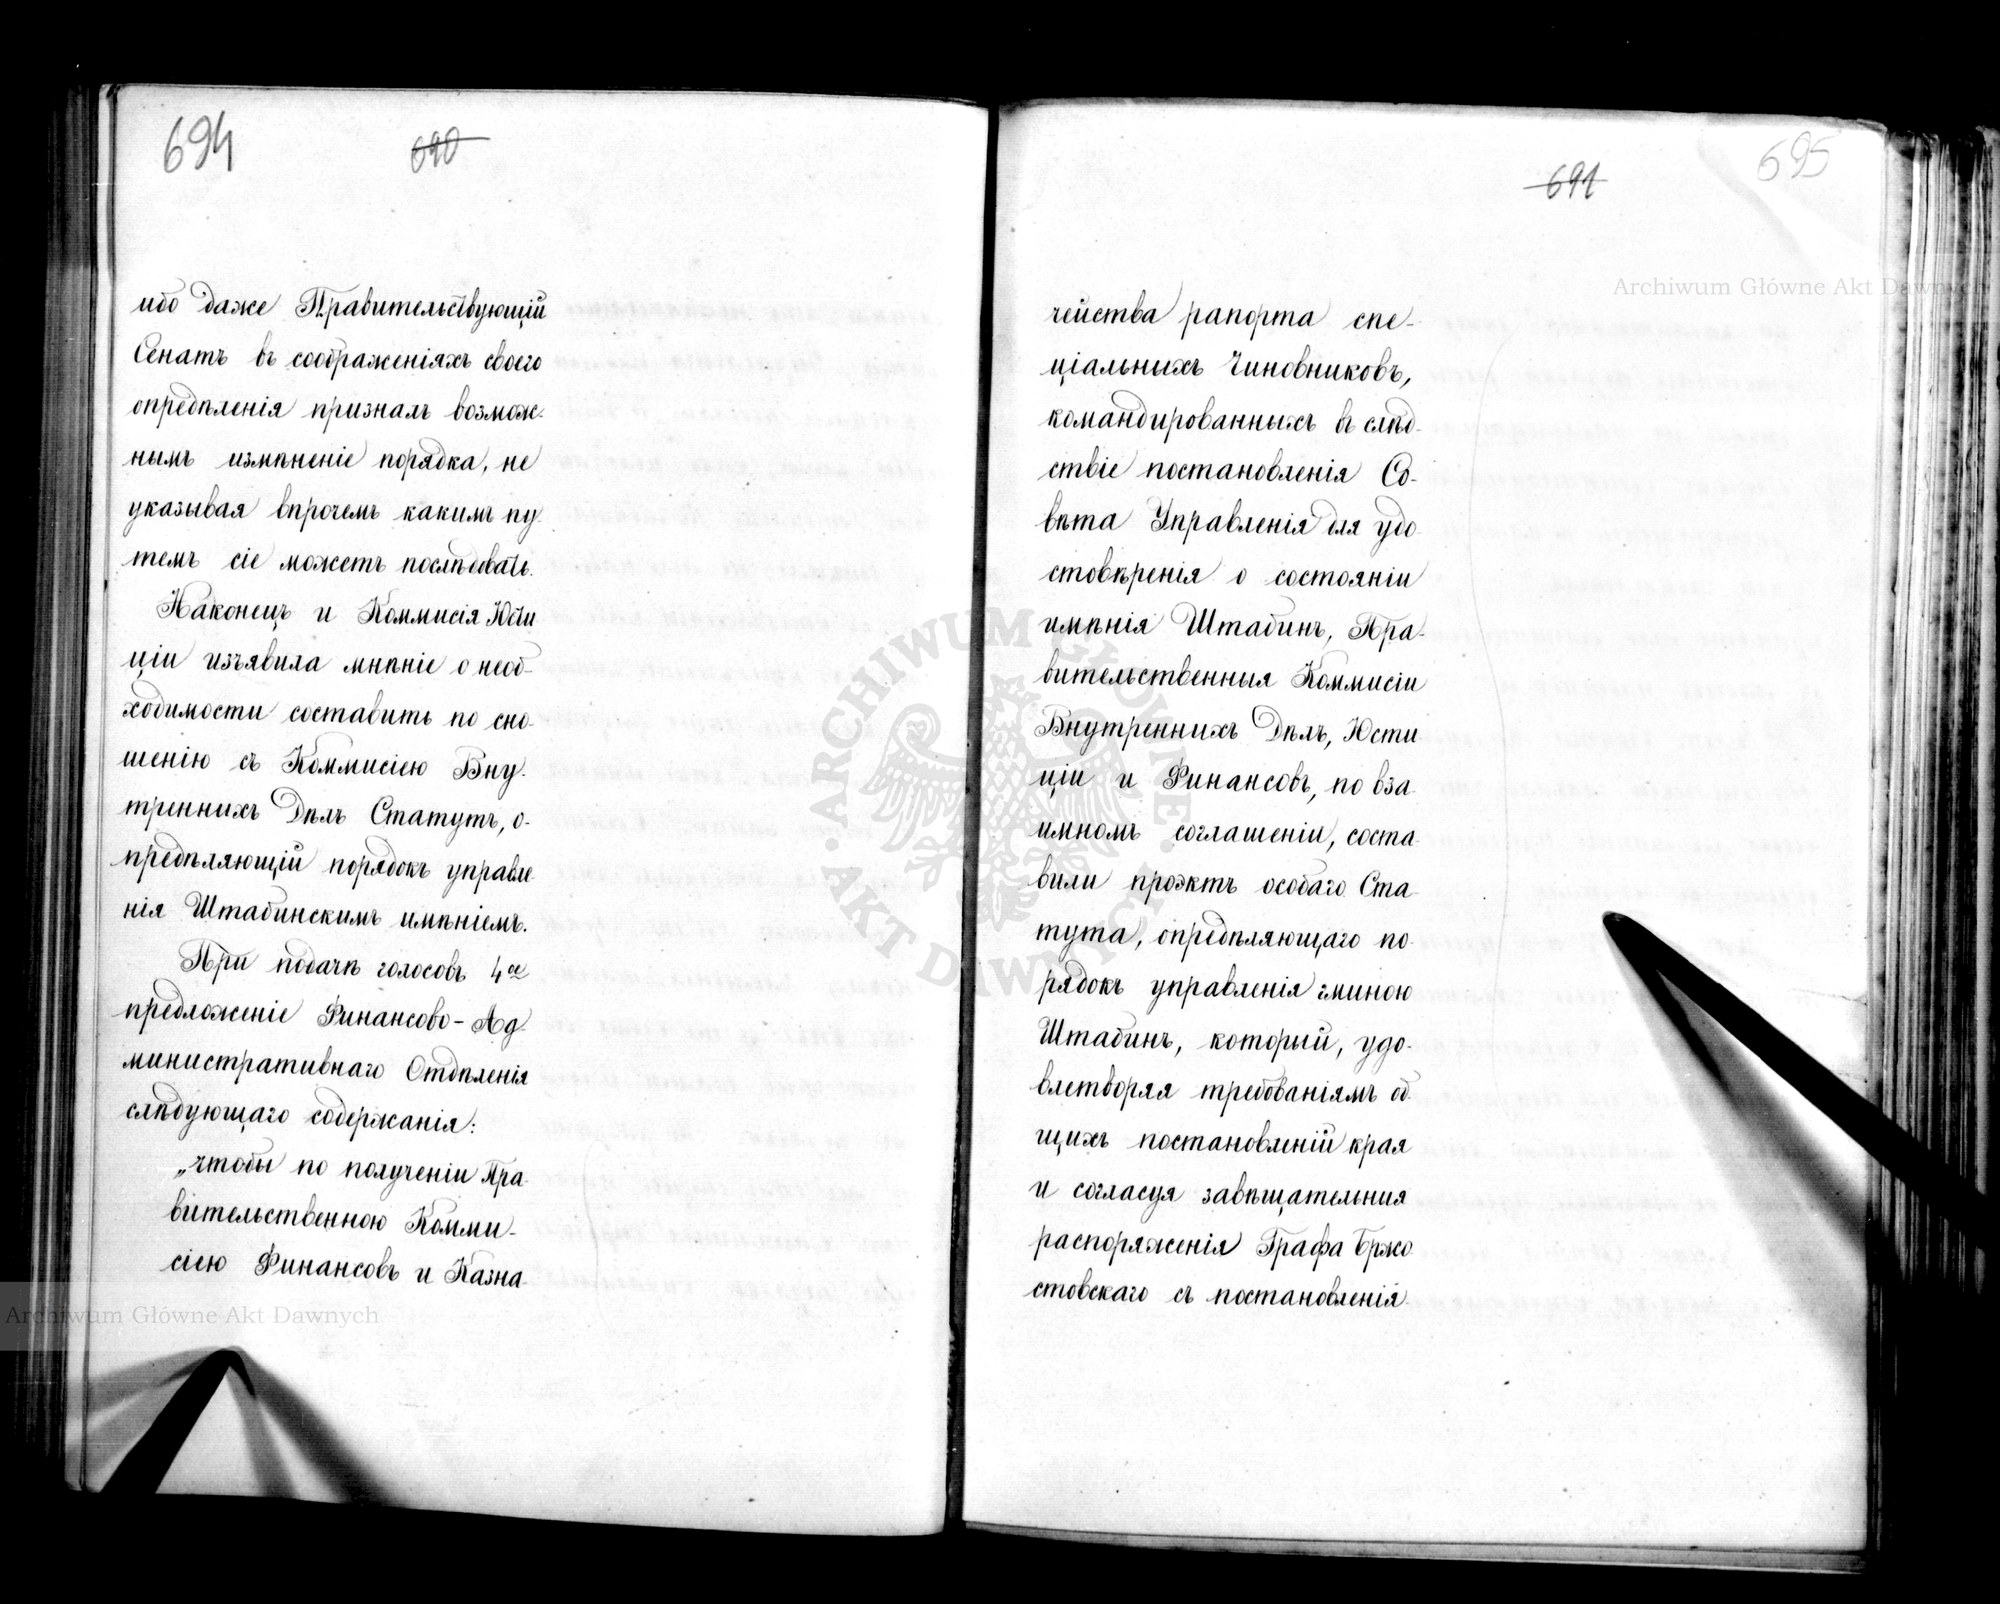 694
690
ибо даже Правительствующій
Сенатъ въ соображеніяхъ своего
опредѣленія призналъ возмож-
нымъ измѣненіе порядка, не
указывая впрочемъ какимъ пу-
темъ сіе можетъ послѣдовать.
Наконецъ и Коммисія Юсти
ціи изъявила мнѣніе о необ-
ходимости составить по сно-
шенію съ Коммисіею Вну-
треннихъ Дѣлъ Статутъ, о-
предѣляющій порядокъ управле-
нія Штабинскимъ имѣніемъ.
При подачѣ голосовъ 4ое
предложеніе Финансово-Ад-
министративнаго Отдѣленія
слѣдующаго содержанія:
„чтобы по полученіи Пра-
вительственною Комми-
сіею Финансовъ и Казна-
695
691
чейства рапорта спе-
ціальныхъ чиновниковъ,
командированныхъ въ слѣд-
ствіе постановленія Со-
вѣта Управленія для удо-
стовѣренія о состояніи
имѣнія Штабинъ, Пра-
вительственныя Коммисіи
Внутреннихъ Дѣлъ, Юсти
ціи и Финансовъ, по вза-
имномъ соглашеніи, соста-
вили проэктъ особаго Ста-
тута, опредѣляющаго по-
рядокъ управленія гминою
Штабинъ, который, удо-
влетворяя требованіямъ об-
щихъ постановленій края
и согласуя завѣщательныя
распоряженія Графа Бржо
стовскаго съ постановленія-
Archiwum Główne Akt Dawnych
Archiwum Główne Akt Dawnych
ARCHIWUM GŁÓWNE AKT DAWNYCH